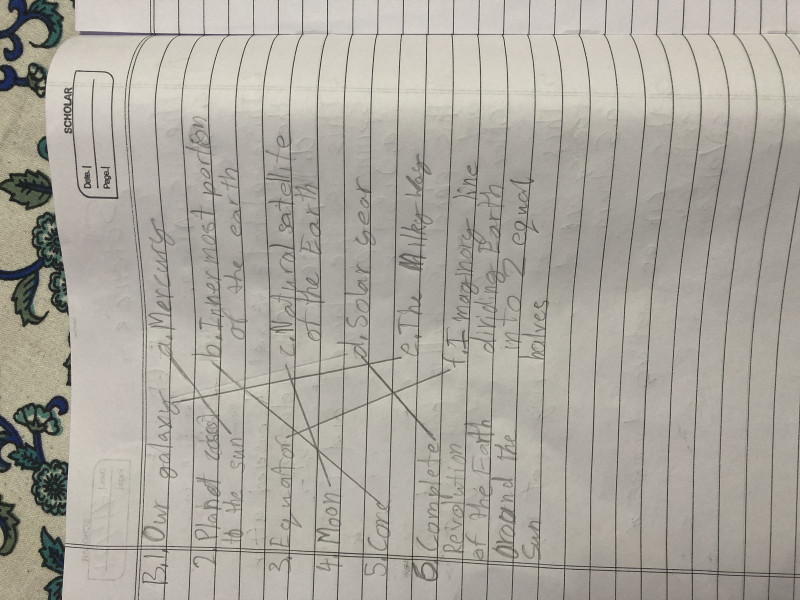 SCHOLAR
Date. |
Page. |
B.1. Our galaxy a. Mercury
2. Planet closest b. Innermost portion
to the sun of the earth
3. Equator c. Natural satellite
of the Earth
4. Moon d. Solar year
5. Core e. The Milky Way
6. Complete f. Imaginory line
Reivolution dividing Earth
of the Earth into 2 equal
around the halves
Sun